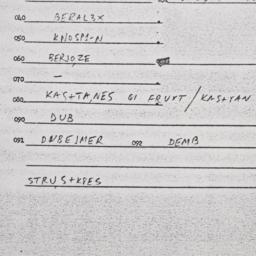 040 BERAL3X
050 KNOSPI-N
060 BERJOZE
070 -
080 KASTANES GI FRUXT / KASTAN
090 DUB
091 DNBEJMER 092 DEMB
STRUSTKPES